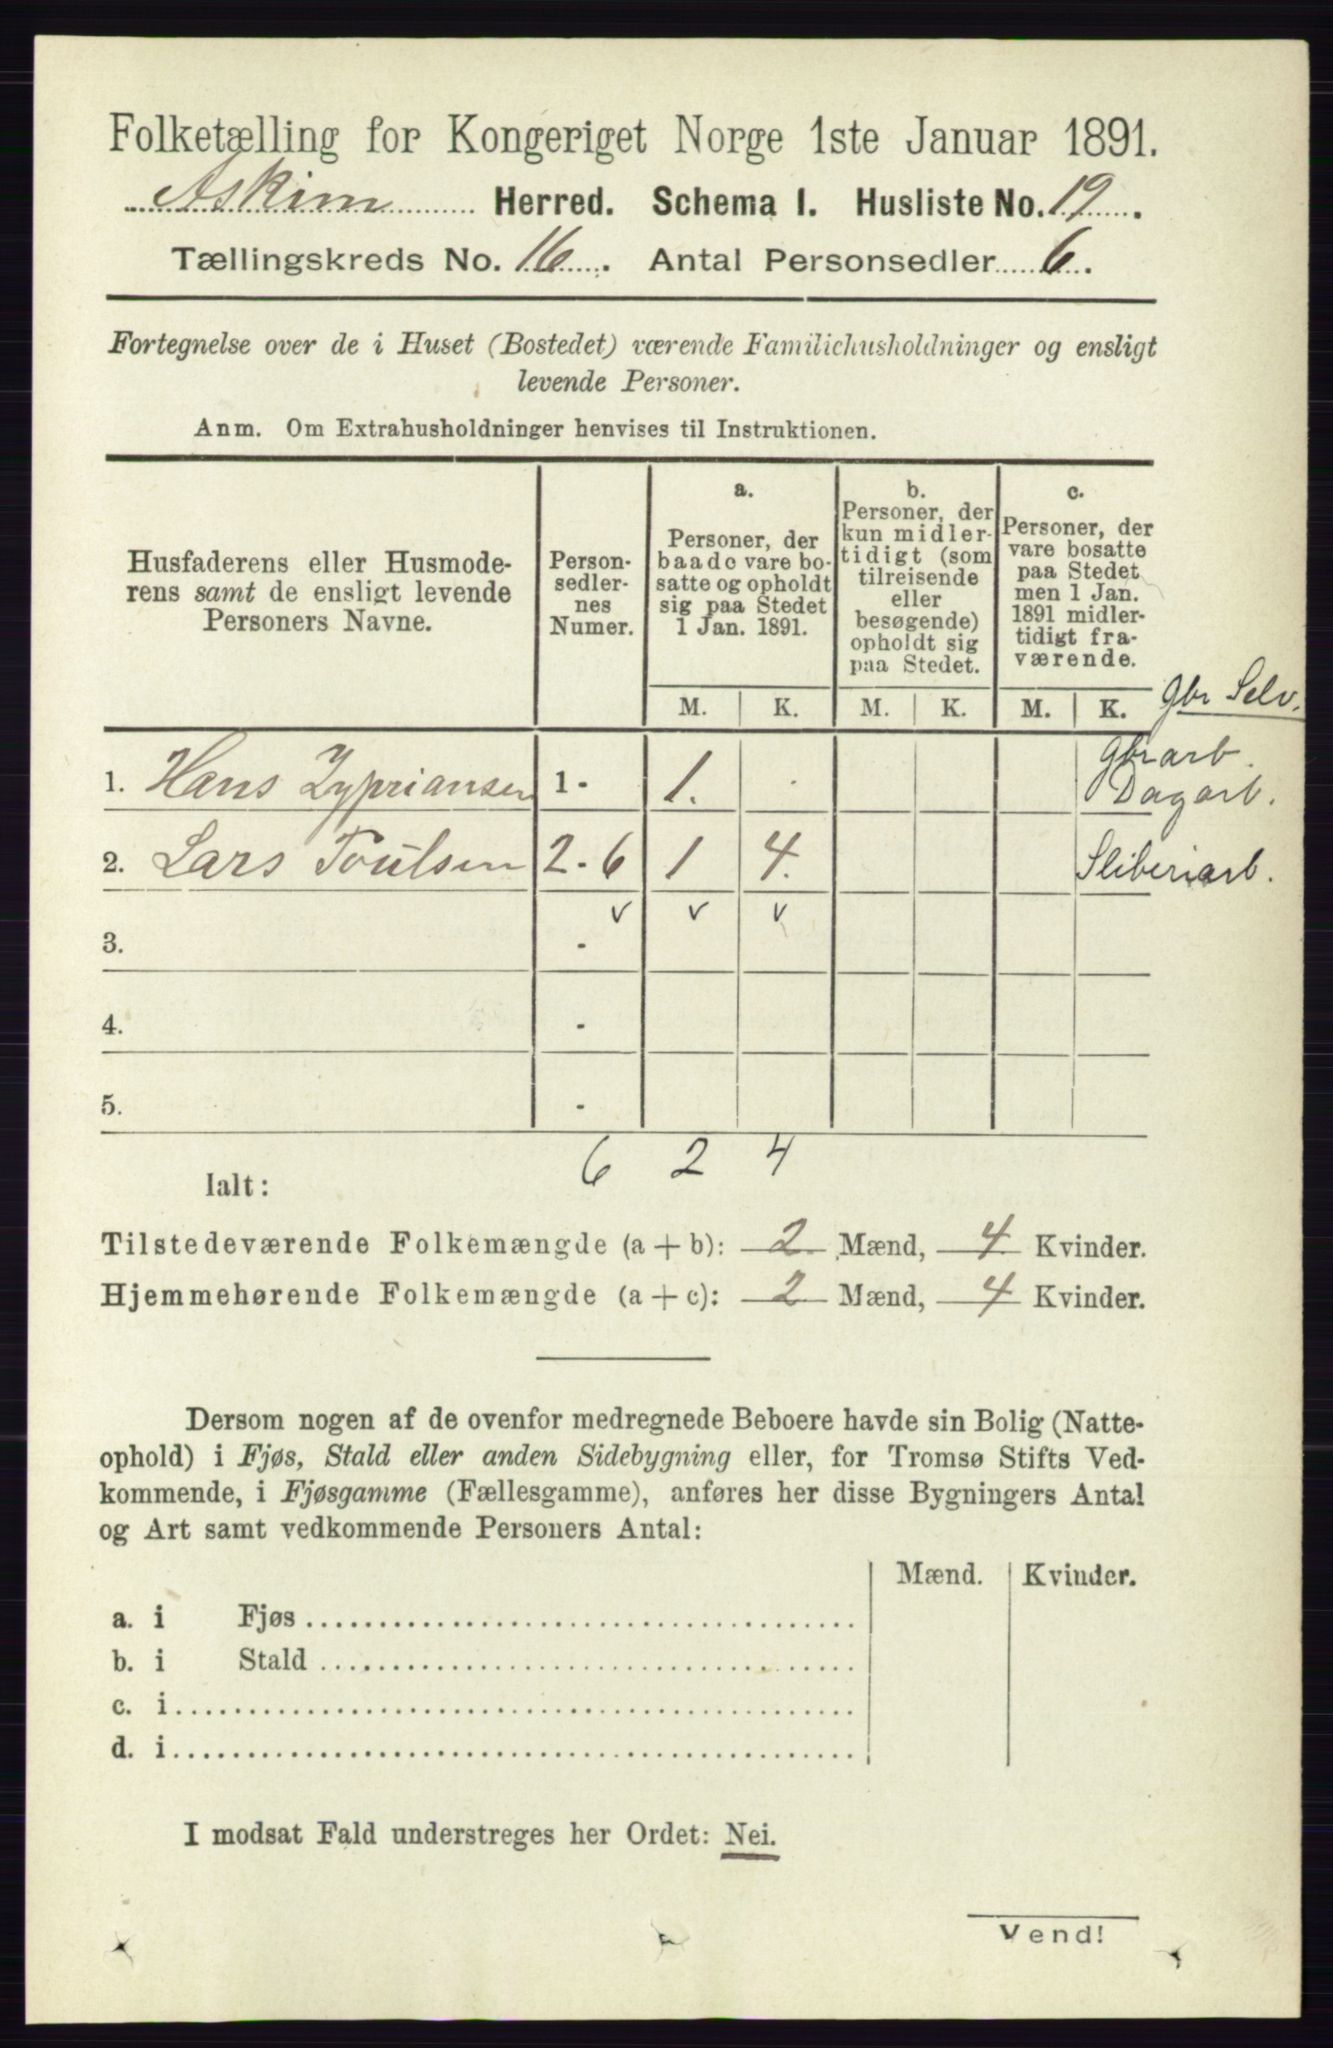 Folketælling for Kongeriget Norge 1ste Januar 1891.
Askim Herred. Schema I. Husliste No. 19.
Tællingskreds No. 16. Antal Personsedler 6.
Fortegnelse over de i Huset (Bostedet) værende Familiehusholdninger og ensligt
levende Personer.
Anm. Om Extrahusholdninger henvises til Instruktionen.
Husfaderens eller Husmode-
rens samt de ensligt levende
Personers Navne.
Person-
sedler-
nes
Numer.
a.
Personer, der
baade vare bo-
satte og opholdt
sig paa Stedet
1 Jan. 1891.
b.
Personer, der
kun midler-
tidigt (som
tilreisende
eller
besøgende)
opholdt sig
paa Stedet.
c.
Personer, der
vare bosatte
paa Stedet
men 1 Jan.
1891 midler-
tidigt fra-
værende.
M. K. M. K. M. K. Gbr Selv.
1. Hans Zypriansen 1 - 1. . Gbrarb. Dagarb.
2. Lars Poulsen 2 - 6 1 4. Sliberiarb.
v v v
3. -
4. -
5. -
6 2 4
Ialt:
Tilstedeværende Folkemængde (a + b): 2 Mænd, 4 Kvinder.
Hjemmehørende Folkemængde (a + c): 2 Mænd, 4 Kvinder.
Dersom nogen af de ovenfor medregnede Beboere havde sin Bolig (Natte-
ophold) i Fjøs, Stald eller anden Sidebygning eller, for Tromsø Stifts Ved-
kommende, i Fjøsgamme (Fællesgamme), anføres her disse Bygningers Antal
og Art samt vedkommende Personers Antal:
Mænd. Kvinder.
a. i Fjøs
b. i Stald
c. i
d. i
I modsat Fald understreges her Ordet: Nei.
Vend!